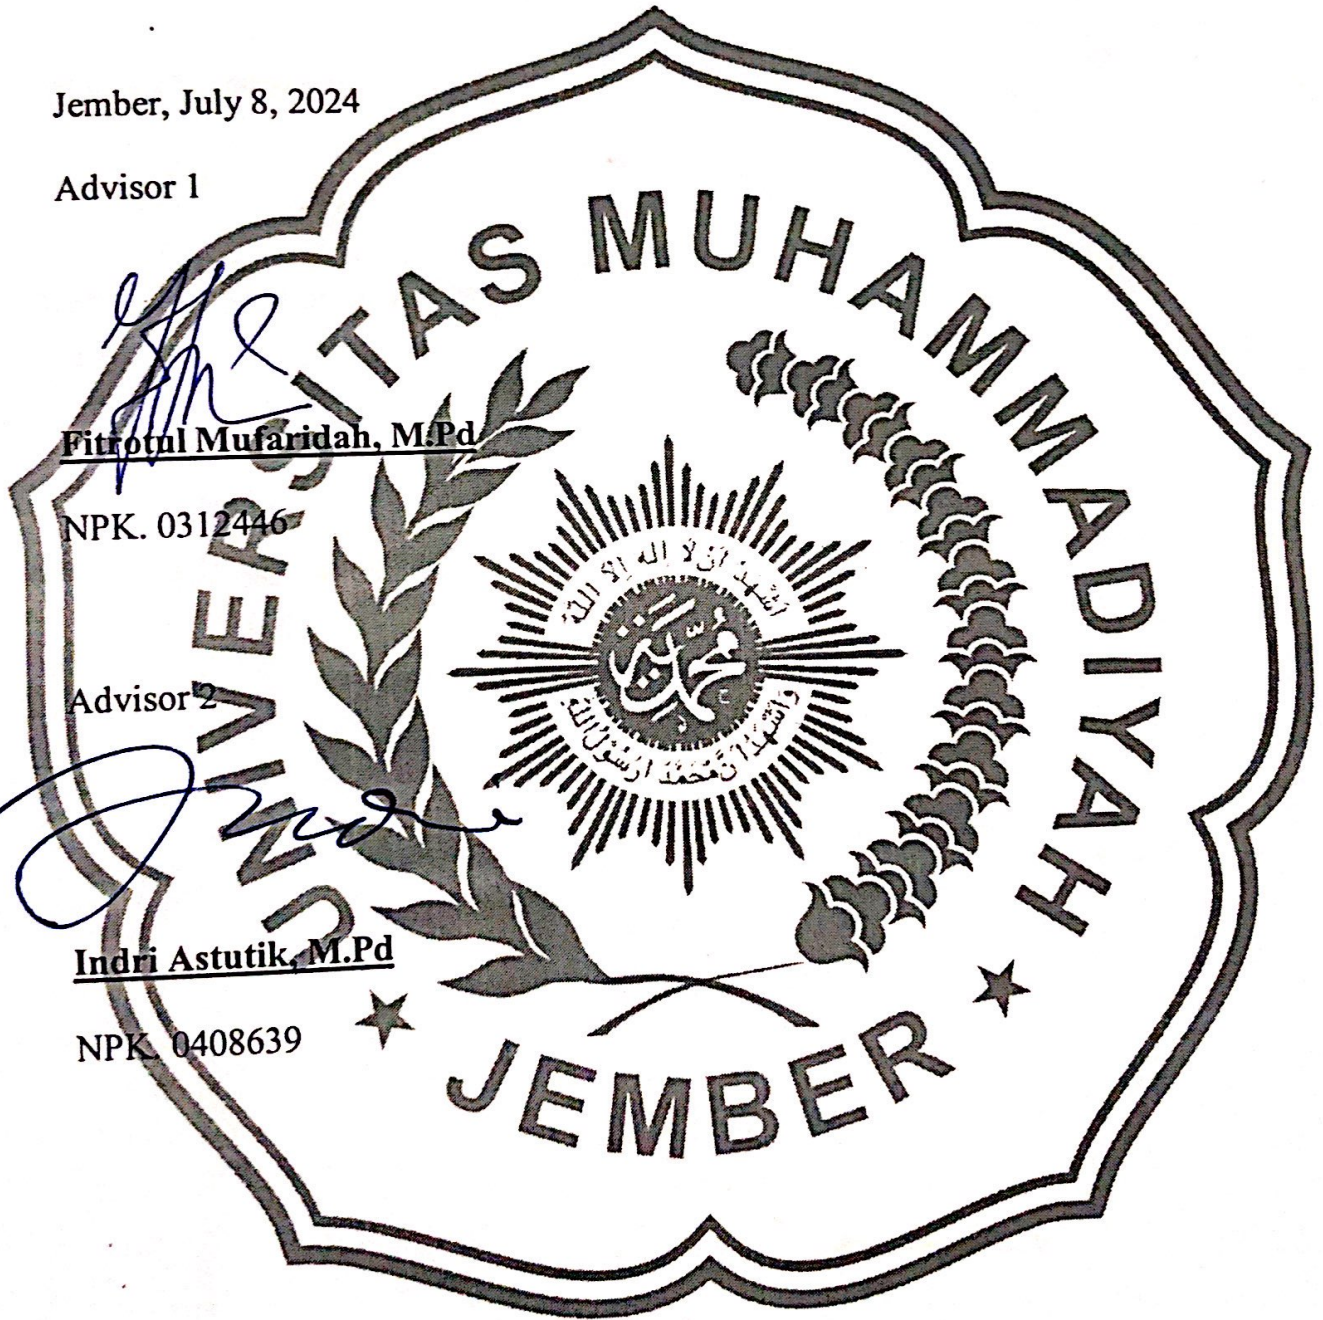 Jember, July 8, 2024
Advisor 1
Fitrotul Mufaridah, M.Pd
NPK. 0312446
Advisor 2
Indri Astutik, M.Pd
NPK. 0408639
UNIVERSITAS MUHAMMADIYAH
JEMBER
اشهد ان لا اله الا الله
محمدية
واشهد ان محمدا رسول الله